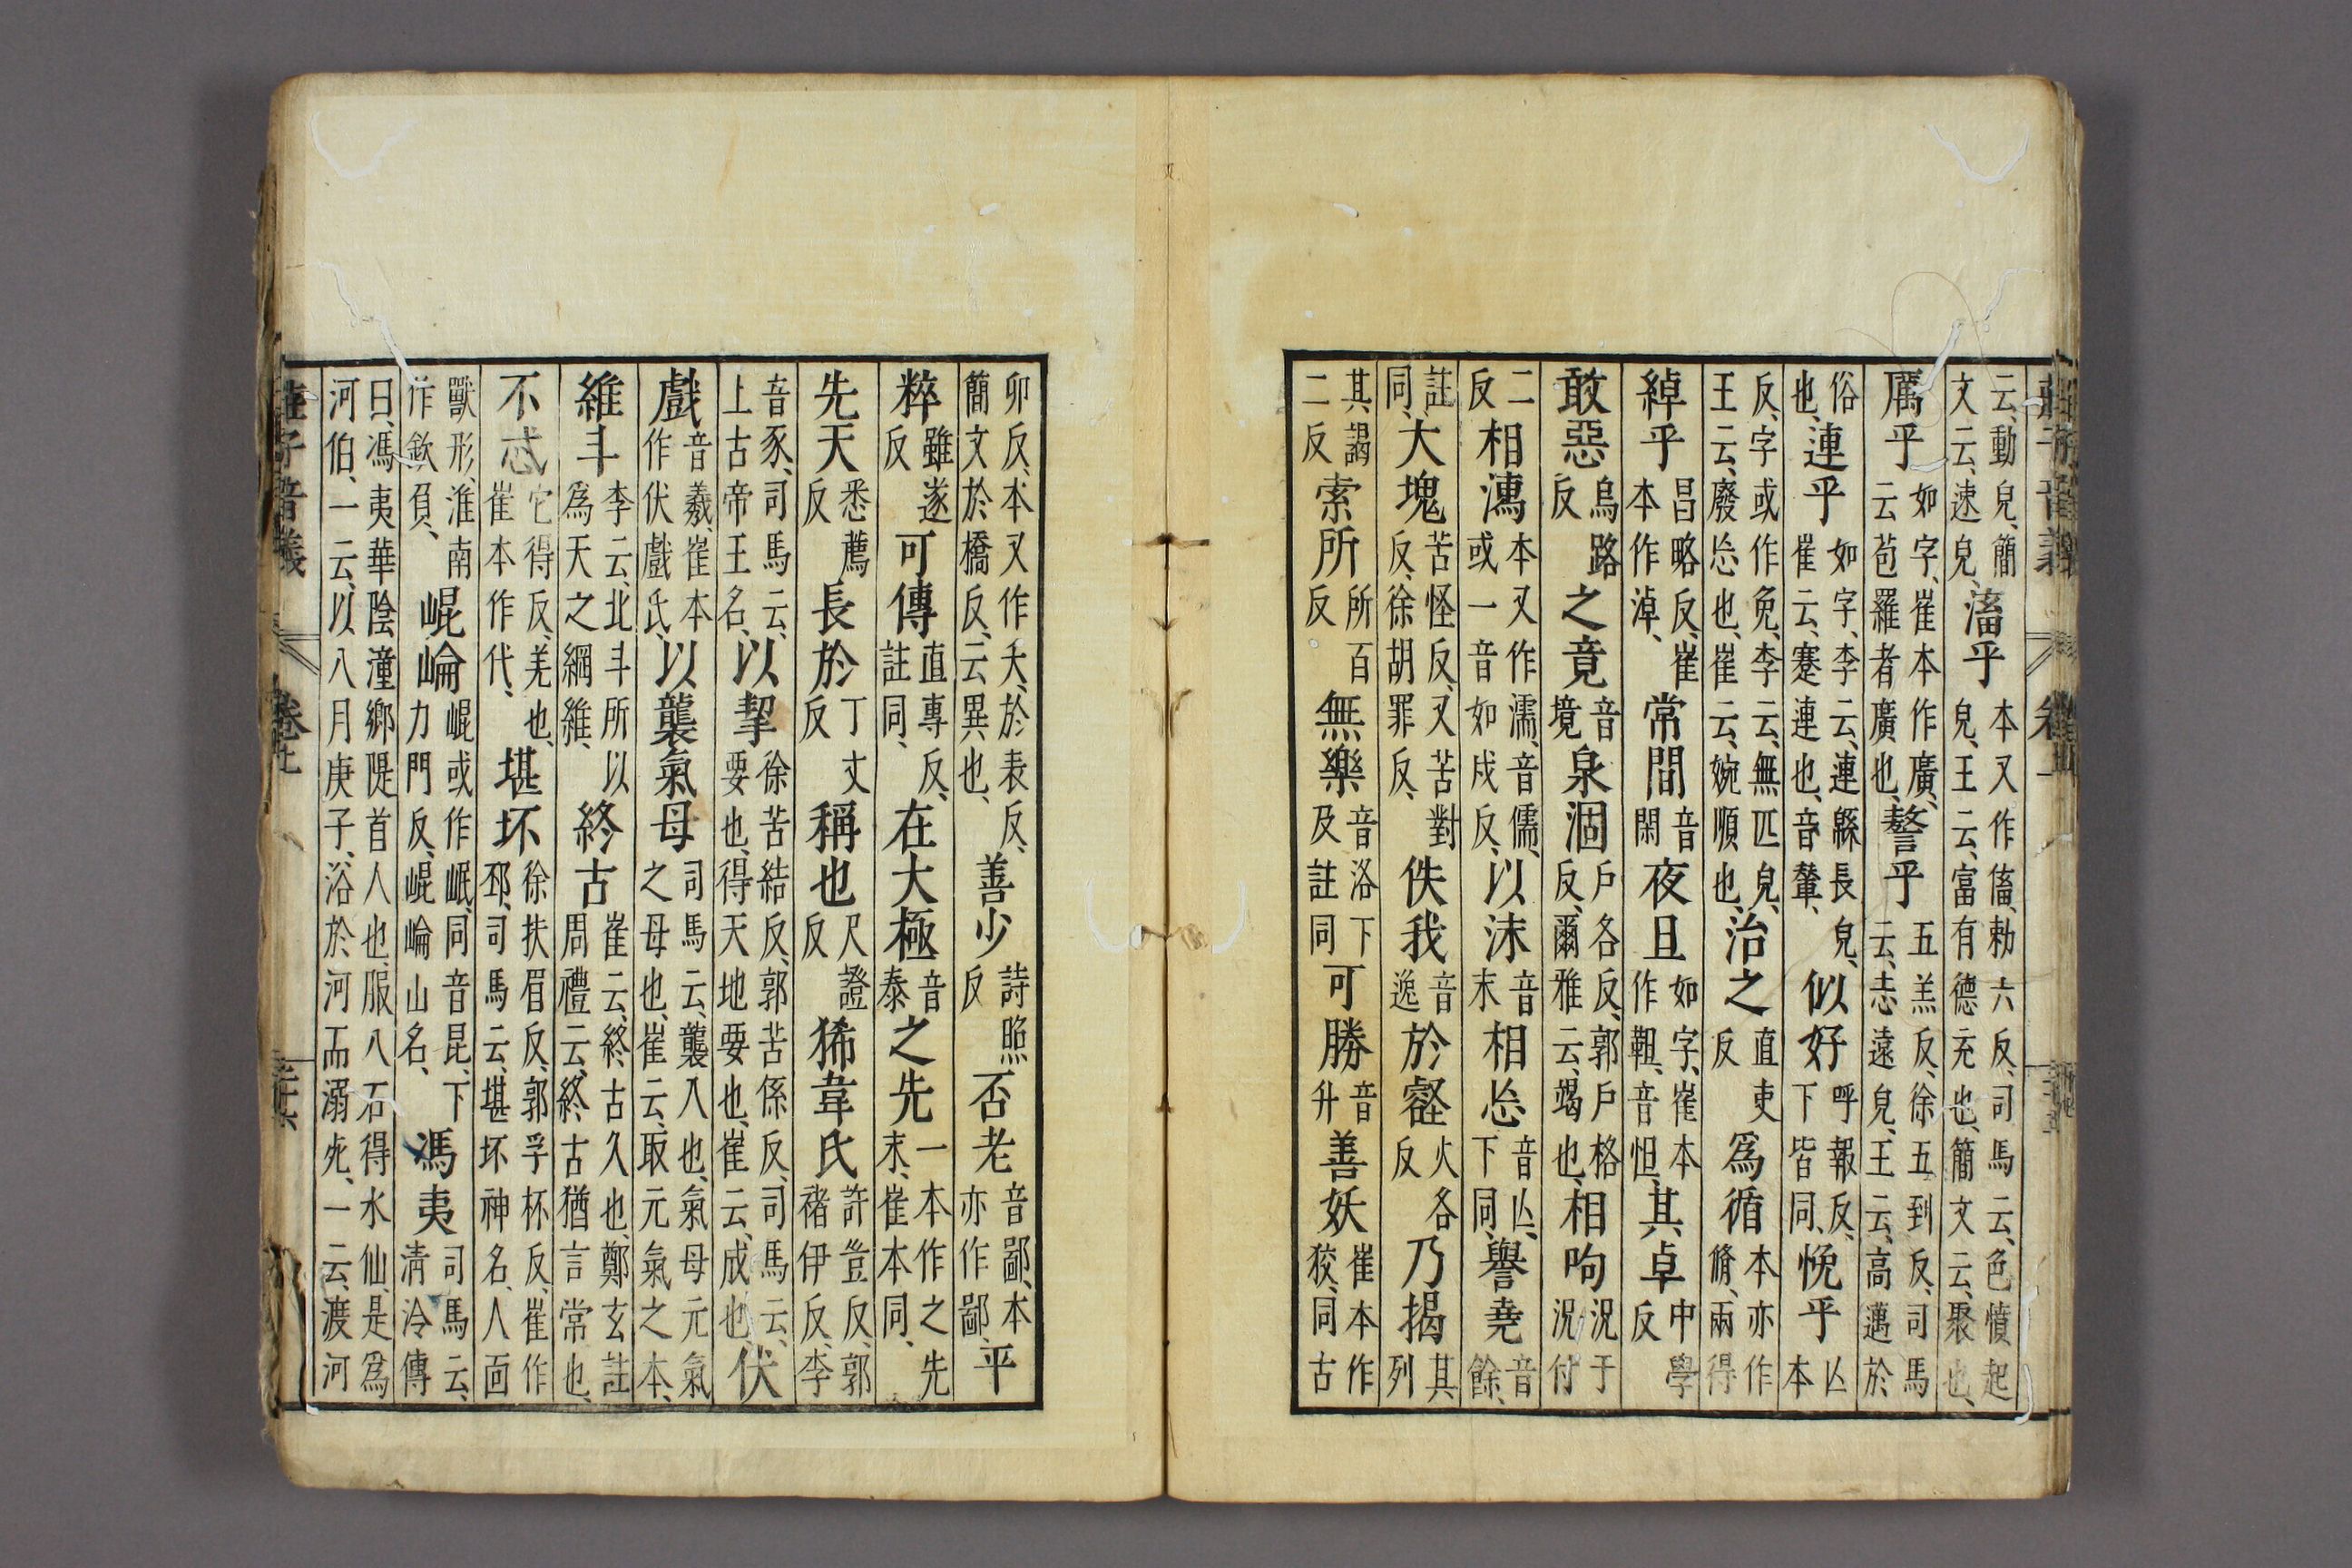 云動皃簡文云速皃滀乎本又作傗勅六反司馬云色憤起皃王云富有德充也簡文云聚也
厲乎如字崔本作廣云苞羅者廣也謷乎五羔反徐五到反司馬云志遠皃王云高邁於
俗也連乎如字李云連緜長皃崔云蹇連也音輦似好呼報反下皆同悗乎亾本
反字或作免李云無匹皃王云廢忘也崔云婉順也治之直吏反爲循本亦作脩兩得
綽乎昌略反崔本作淖常閒音閑夜旦如字崔本作靼音怛其卓中學反
敢惡烏路反之竟音境泉涸戶各反郭戶格反爾雅云竭也相呴況于況付
二反相濡本又作濡音儒或一音如戍反以沫音末相忘音亾下同譽堯音餘
註同大塊苦怪反又苦對反徐胡罪反佚我音逸於壑火各反乃揭其列
其謁二反索所所百反無樂音洛下及註同可勝音升善妖崔本作狡同古
卯反本又作夭於表反簡文於橋反云異也善少詩照反否老音鄙本亦作鄙平
粹雖遂反可傳直專反註同在大極音泰之先一本作之先末崔本同
先天悉薦反長於丁丈反稱也尺證反狶韋氏許豈反郭褚伊反李
音豕司馬云上古帝王名以挈徐苦結反郭苦係反司馬云要也得天地要也崔云成也伏
戲音羲崔本作伏戲氏以襲氣母司馬云襲入也氣母元氣之母也崔云取元氣之本
維斗李云北斗所以爲天之綱維終古崔云終古久也鄭玄註周禮云終古猶言常也
不忒它得反差也崔本作代堪坏徐扶眉反郭孚杯反崔作邳司馬云堪坏神名人面
獸形淮南作欽負崐崘崐或作岷同音昆下力門反崐崘山名馮夷司馬云清泠傳
曰馮夷華陰潼鄉隄首人也服八石得水仙是爲河伯一云以八月庚子浴於河而溺死一云渡河
莊子音義 卷